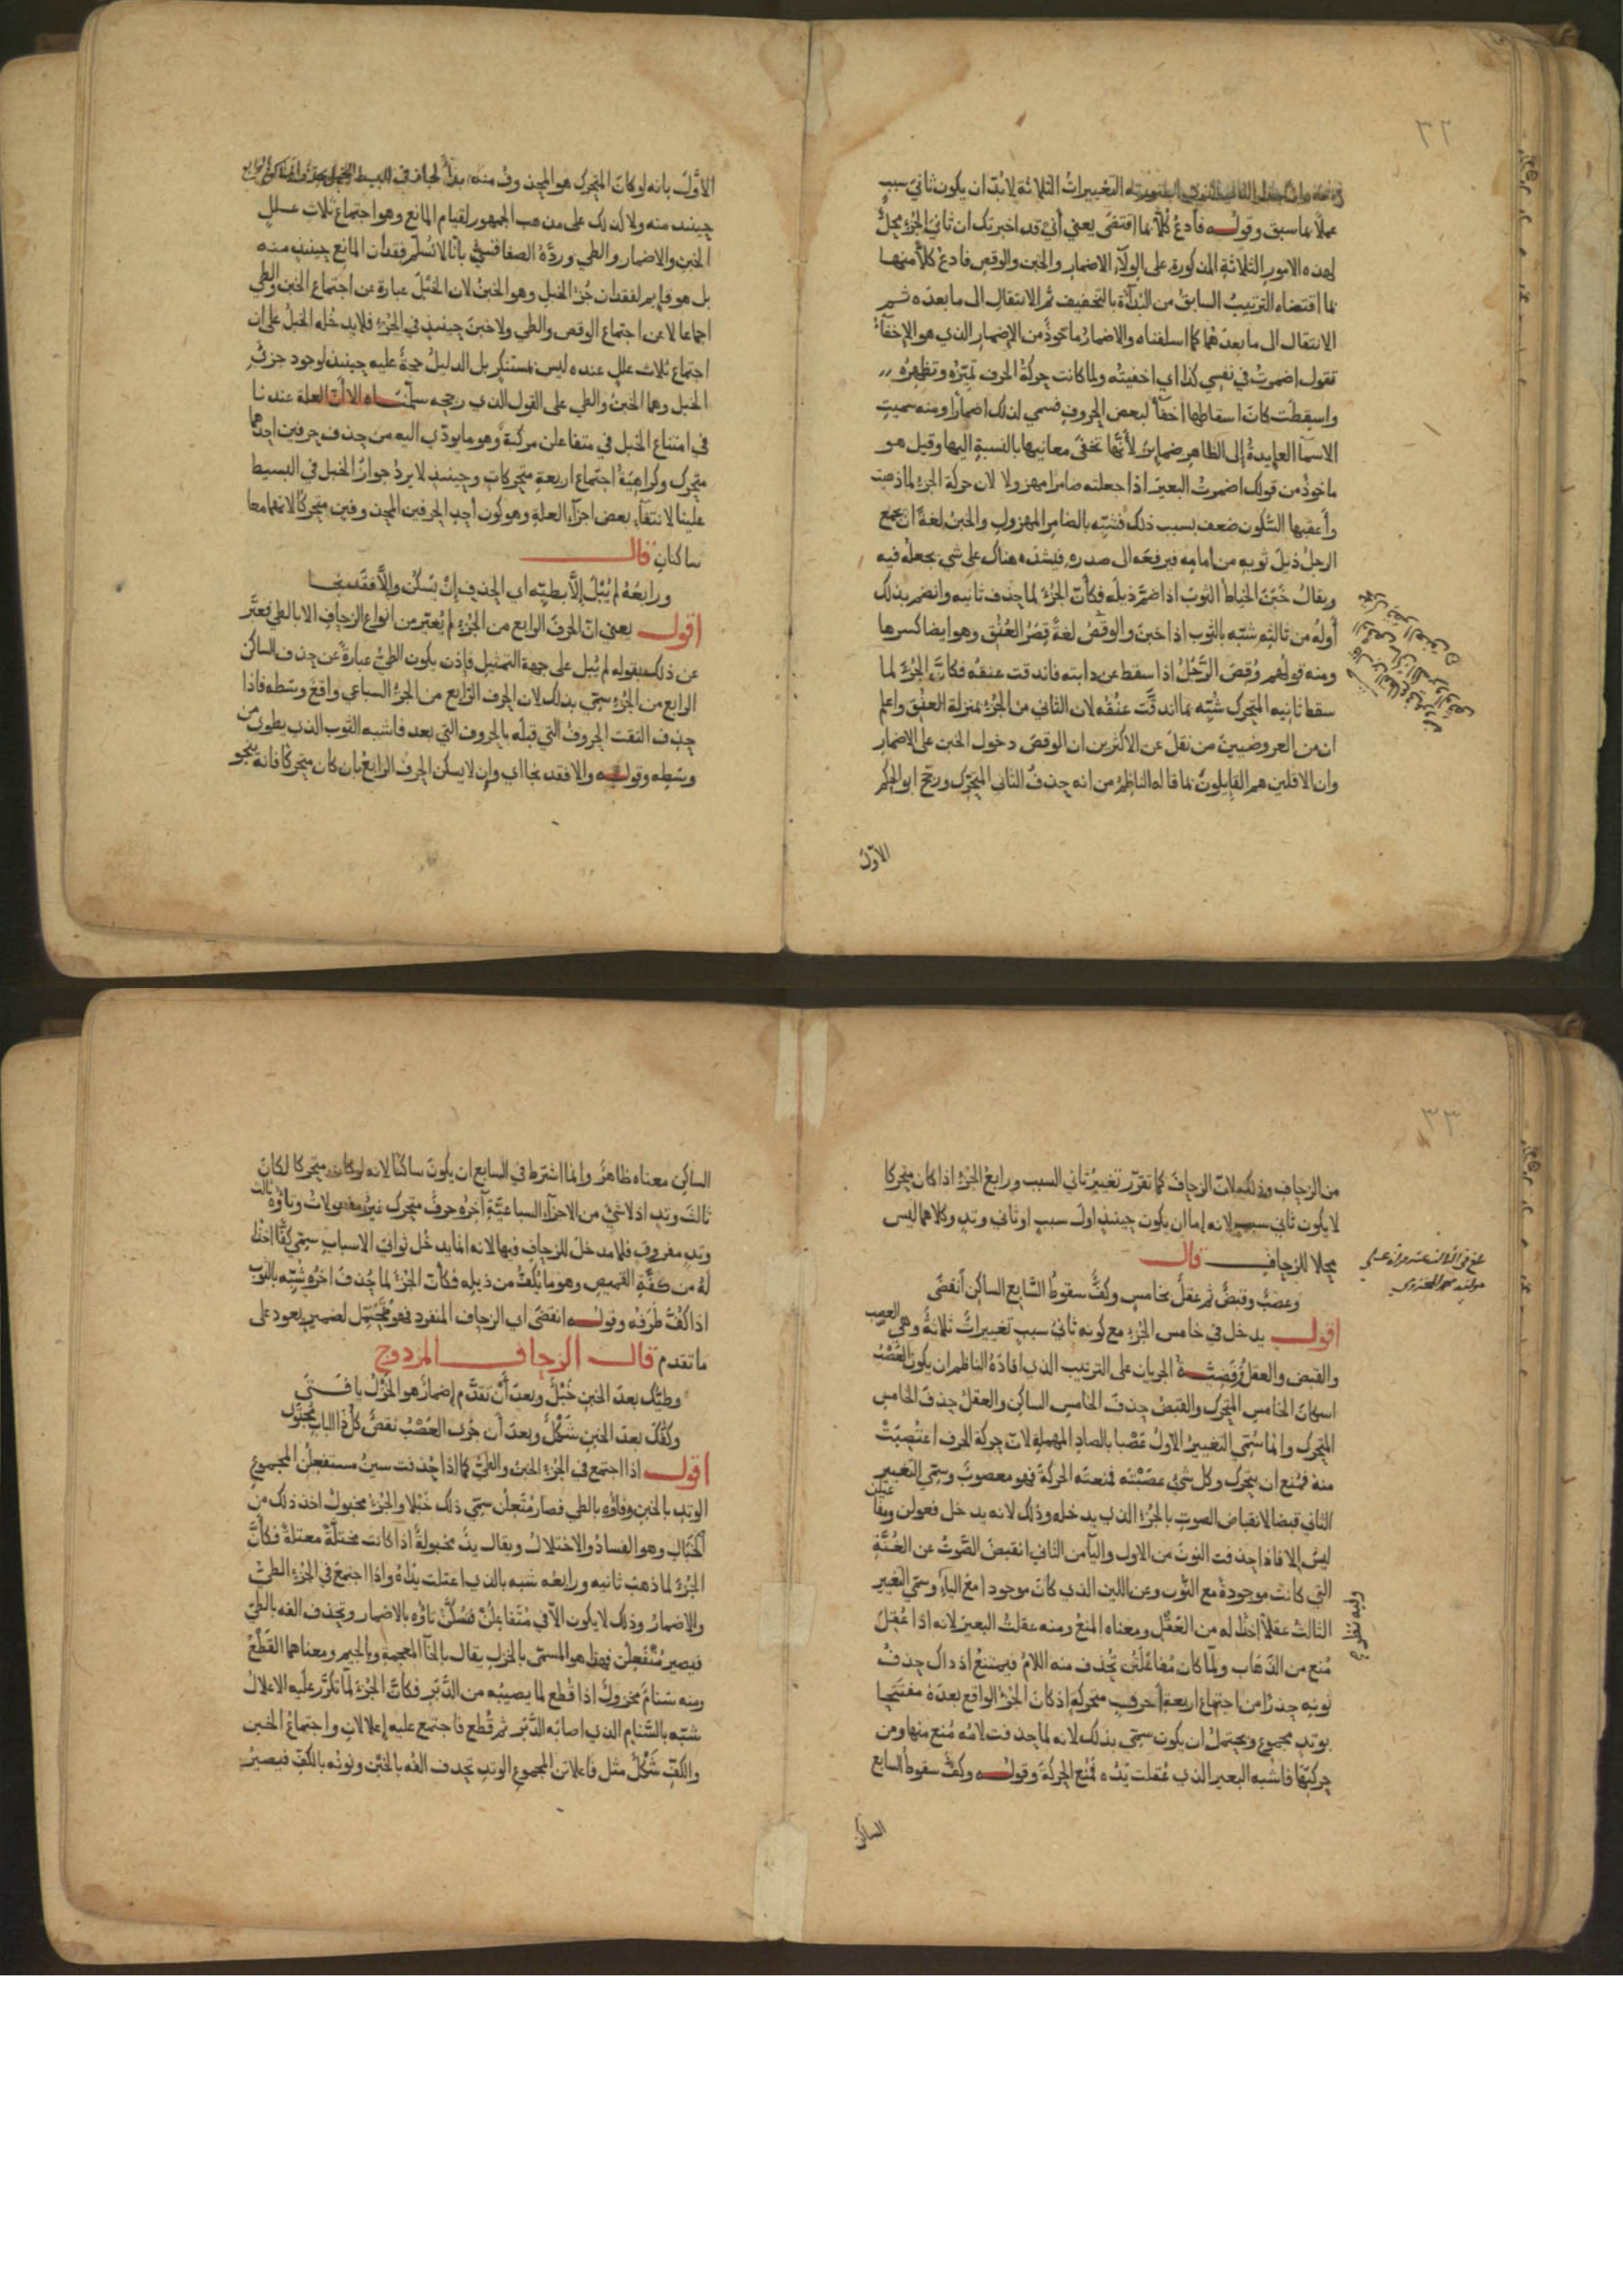 ٣٢
التغييرات الثلاثة لابد ان يكون ثاني سبب
عملا بما سبق وقوله فادع كلا بما اقتضى يعني أني قد اخبرتك ان ثاني الجزء محل
لهذه الامور الثلاثة المذكورة على الولاء الاضمار والخبن والوقص فادع كلا منها
بما اقتضاه الترتيب السابق من البداءة بالتخفيف ثم الانتقال الى ما بعده ثم
الانتقال الى ما بعدهما كما اسلفناه والاضمار ماخوذ من الإضمار الذي هو الإخفاء
تقول اضمرت في نفسي كذا اي اخفيته ولما كانت حركة الحرف تميزه وتظهره
واسقطت كان اسقاطها اخفاء لبعض الحروف فسمي لذلك اضمارا ومنه سميت
الاسما العايدة إلى الظاهر ضماير لأنها تخفى معانيها بالنسبة اليها وقيل هو
ماخوذ من قولك اضمرت البعير اذا جعلته ضامرا مهزولا لان حركة الجزء لما ذهبت
وأعقبها السكون ضعف بسبب ذلك فشبه بالضامر المهزول والخبن لغة ان يجمع
الرجل ذيل ثوبه من أمامه فيرفعه الى صدره فيشده هناك على شي يجعله فيه
ويقال خبن الخياط الثوب اذا ضم ذيله فكأن الجزء لما حذف ثانيه وانضم بذلك
أوله من ثالثه شبه بالثوب اذا خبن والوقص لغة قصر العنق وهو ايضا كسرها
ومنه قولهم وقص الرجل اذا سقط عن دابته فاندقت عنقه فكان الجزء لما
سقط ثانيه المتحرك شبه بما اندقت عنقه لان الثاني من الجزء بمنزلة العنق واعلم
ان من العروضيين من نقل عن الاكثرين ان الوقص دخول الخبن على الاضمار
وان الاقلين هم القايلون بما قاله الناظم من انه حذف الثاني المتحرك ورجح ابو الحكم
الأول
الأول بانه لو كان المتحرك هو المحذوف منه بدأ لجاز في البسيط
حينئذ منه ولا كذلك على مذهب الجمهور لقيام المانع وهو اجتماع ثلاث علل
الخبن والاضمار والطي ورده الصفاقسي بأنا لا نسلم فقدان المانع حينئذ منه
بل هو قايم لفقدان جزء الخبل وهو الخبن لان الخبل عبارة عن اجتماع الخبن والطي
اجماعا لا عن اجتماع الوقص والطي ولا خبن حينئذ في الجزء فلا يدخله الخبل على ان
اجتماع ثلاث علل عنده ليس بمستنكر بل الدليل حجة عليه حينئذ لوجود جزئي
الخبل وهما الخبن والطي على القول الذي رجحه سلمناه الا ان العلة عندنا
في امتناع الخبل في متفاعلن مركبة وهو ما يؤدي اليه من حذف حرفين احدهما
متحرك وكراهية اجتماع اربعة متحركات وحينئذ لا يرد جواز الخبل في البسيط
علينا لانتفاء بعض اجزاء العلة وهو كون احد الحرفين المحذوفين متحركا لانهما معا
ساكنان قال
ورابعه لم يبل إلا بطيه اي الحذف إن يسكن وإلا فقد نجا
اقول يعني ان الحرف الرابع من الجزء لم يعتبر من انواع الزحاف الا بالطي فعبر
عن ذلك بقوله لم يبل على جهة التمثيل فاذن يكون الطي عبارة عن حذف الساكن
الرابع من الجزء سمي بذلك لان الحرف الرابع من الجزء السباعي واقع وسطه فاذا
حذف التقت الحروف التي قبله بالحروف التي بعد فاشبه الثوب الذي يطوى من
وسطه وقوله والا فقد نجا اي وإن لا يسكن الحرف الرابع بان كان متحركا فانه ينجو
٣٣
من الزحاف وذلك لان الزحاف كما تقرر تغيير ثاني السبب ورابع الجزء اذا كان متحركا
لا يكون ثاني سبب لانه إما ان يكون حينئذ اول سبب او ثاني وتد وكلاهما ليس
محلا للزحاف قال
وعصب وقبض ثم عقل بخامس وكف سقوط السابع الساكن أنقضى
اقول يدخل في خامس الجزء مع كونه ثاني سبب تغييرات ثلاثة وهي العصب
والقبض والعقل وقضية الجريان على الترتيب الذي افاده الناظم ان يكون العصب
اسكان الخامس المتحرك والقبض حذف الخامس الساكن والعقل حذف الخامس
المتحرك وانما سمي التغيير الاول عصبا بالصاد المهملة لان حركة الحرف اعتصبت
منه فمنع ان يتحرك وكل شيء عصبته فمنعته الحركة فهو معصوب وسمي التغيير
الثاني قبضا لانقباض الصوت بالجزء الذي يدخله وذلك لانه يدخل فعولن ومفاعيلن
ليس إلا فاذا حذفت النون من الاول والياء من الثاني انقبض الصوت عن الغنة
التي كانت موجودة مع النون وعن اللين الذي كان موجودا مع الياء وسمي التغيير
الثالث عقلا اخذا له من العقل ومعناه المنع ومنه عقلت البعير لانه اذا عقل
منع من الذهاب ولما كان مفاعلتن تحذف منه اللام فيمتنع اذ ذاك حذف
نونه حذرا من اجتماع اربعة احرف متحركة إذ كان الجزء الواقع بعده مفتتحا
بوتد مجموع ويحتمل ان يكون سمي بذلك لانه لما حذفت لامه منع منها ومن
حركتها فاشبه البعير الذي عقلت يده فمنع الحركة وقوله وكف سقوط السابع
الساكن
الساكن معناه ظاهر وانما اشترط في السابع ان يكون ساكنا لانه لو كان متحركا لكان
ثالث وتد اذ لا شيء من الاجزاء السباعية آخره حرف متحرك غير مفعولات وتاؤه ثالث
وتد مفروق فلا مدخل للزحاف فيها لانه انما يدخل ثواني الاسباب سمي كفا اخذا
له من كفة القميص وهو ما يكف من ذيله فكأن الجزء لما حذف اخره شبه بالثوب
اذا كف طرفه وقوله انقضى اي الزحاف المنفرد فهو متحمل لضمير يعود على
ما تقدم قال الزحاف المزدوج
وطيك بعد الخبن خبل وبعد أن تقدم إضمار هو الخزل يا فتى
وكفك بعد الخبن شكل وبعد أن جرى العصب نقص كل ذا الباب مجتوى
اقول اذا اجتمع في الجزء الخبن والطي كما اذا حذفت سين مستفعلن المجموع
الوتد بالخبن وفاؤه بالطي فصار متعلن سمي ذلك خبلا والجزء مخبول اخذ ذلك من
الخبال وهو الفساد والاختلال ويقال يد مخبولة اذا كانت مختلة معتلة فكأن
الجزء لما ذهب ثانيه ورابعه شبه بالذي اعتلت يداه واذا اجتمع في الجزء الطي
والإضمار وذلك لا يكون الا في متفاعلن فتسكن تاؤه بالاضمار وتحذف الفه بالطي
فيصير متفعلن فهذا هو المسمى بالخزل يقال بالخاء المعجمة وبالجيم ومعناهما القطع
ومنه سنام مخزول اذا قطع لما يصيبه من الدبر فكأن الجزء لما تكرر عليه الاعلال
شبه بالسنام الذي اصابه الدبر ثم قطع فاجتمع عليه إعلالان واجتماع الخبن
والكف شكل مثل فاعلاتن المجموع الوتد تحذف الفه بالخبن ونونه بالكف فيصير